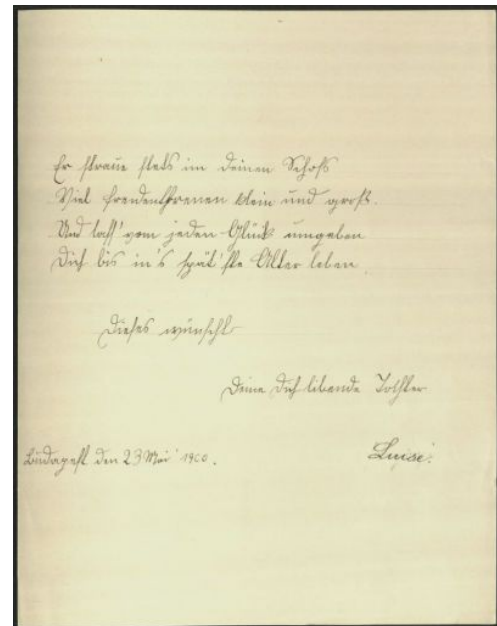 Er straue stets im deinen Schoß
Viel freudenthrenen klein und groß.
Und lass' vom jeden Glück umgeben
Dich bis in's spät'ste Alter leben.
Dieses wünscht
Deine Dich libende Tochter
Budapest den 23 Mai 1900.
Luise.